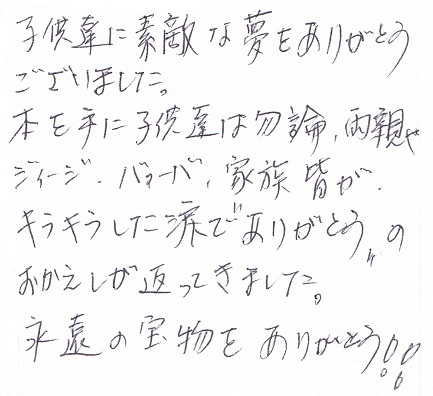 子供達に素敵な夢をありがとう
ございました。
本を手に子供達は勿論、両親や
ジィージ、バァーバ、家族皆が、
キラキラした涙で"ありがとう"の
おかえしが返ってきました。
永遠の宝物をありがとう!!